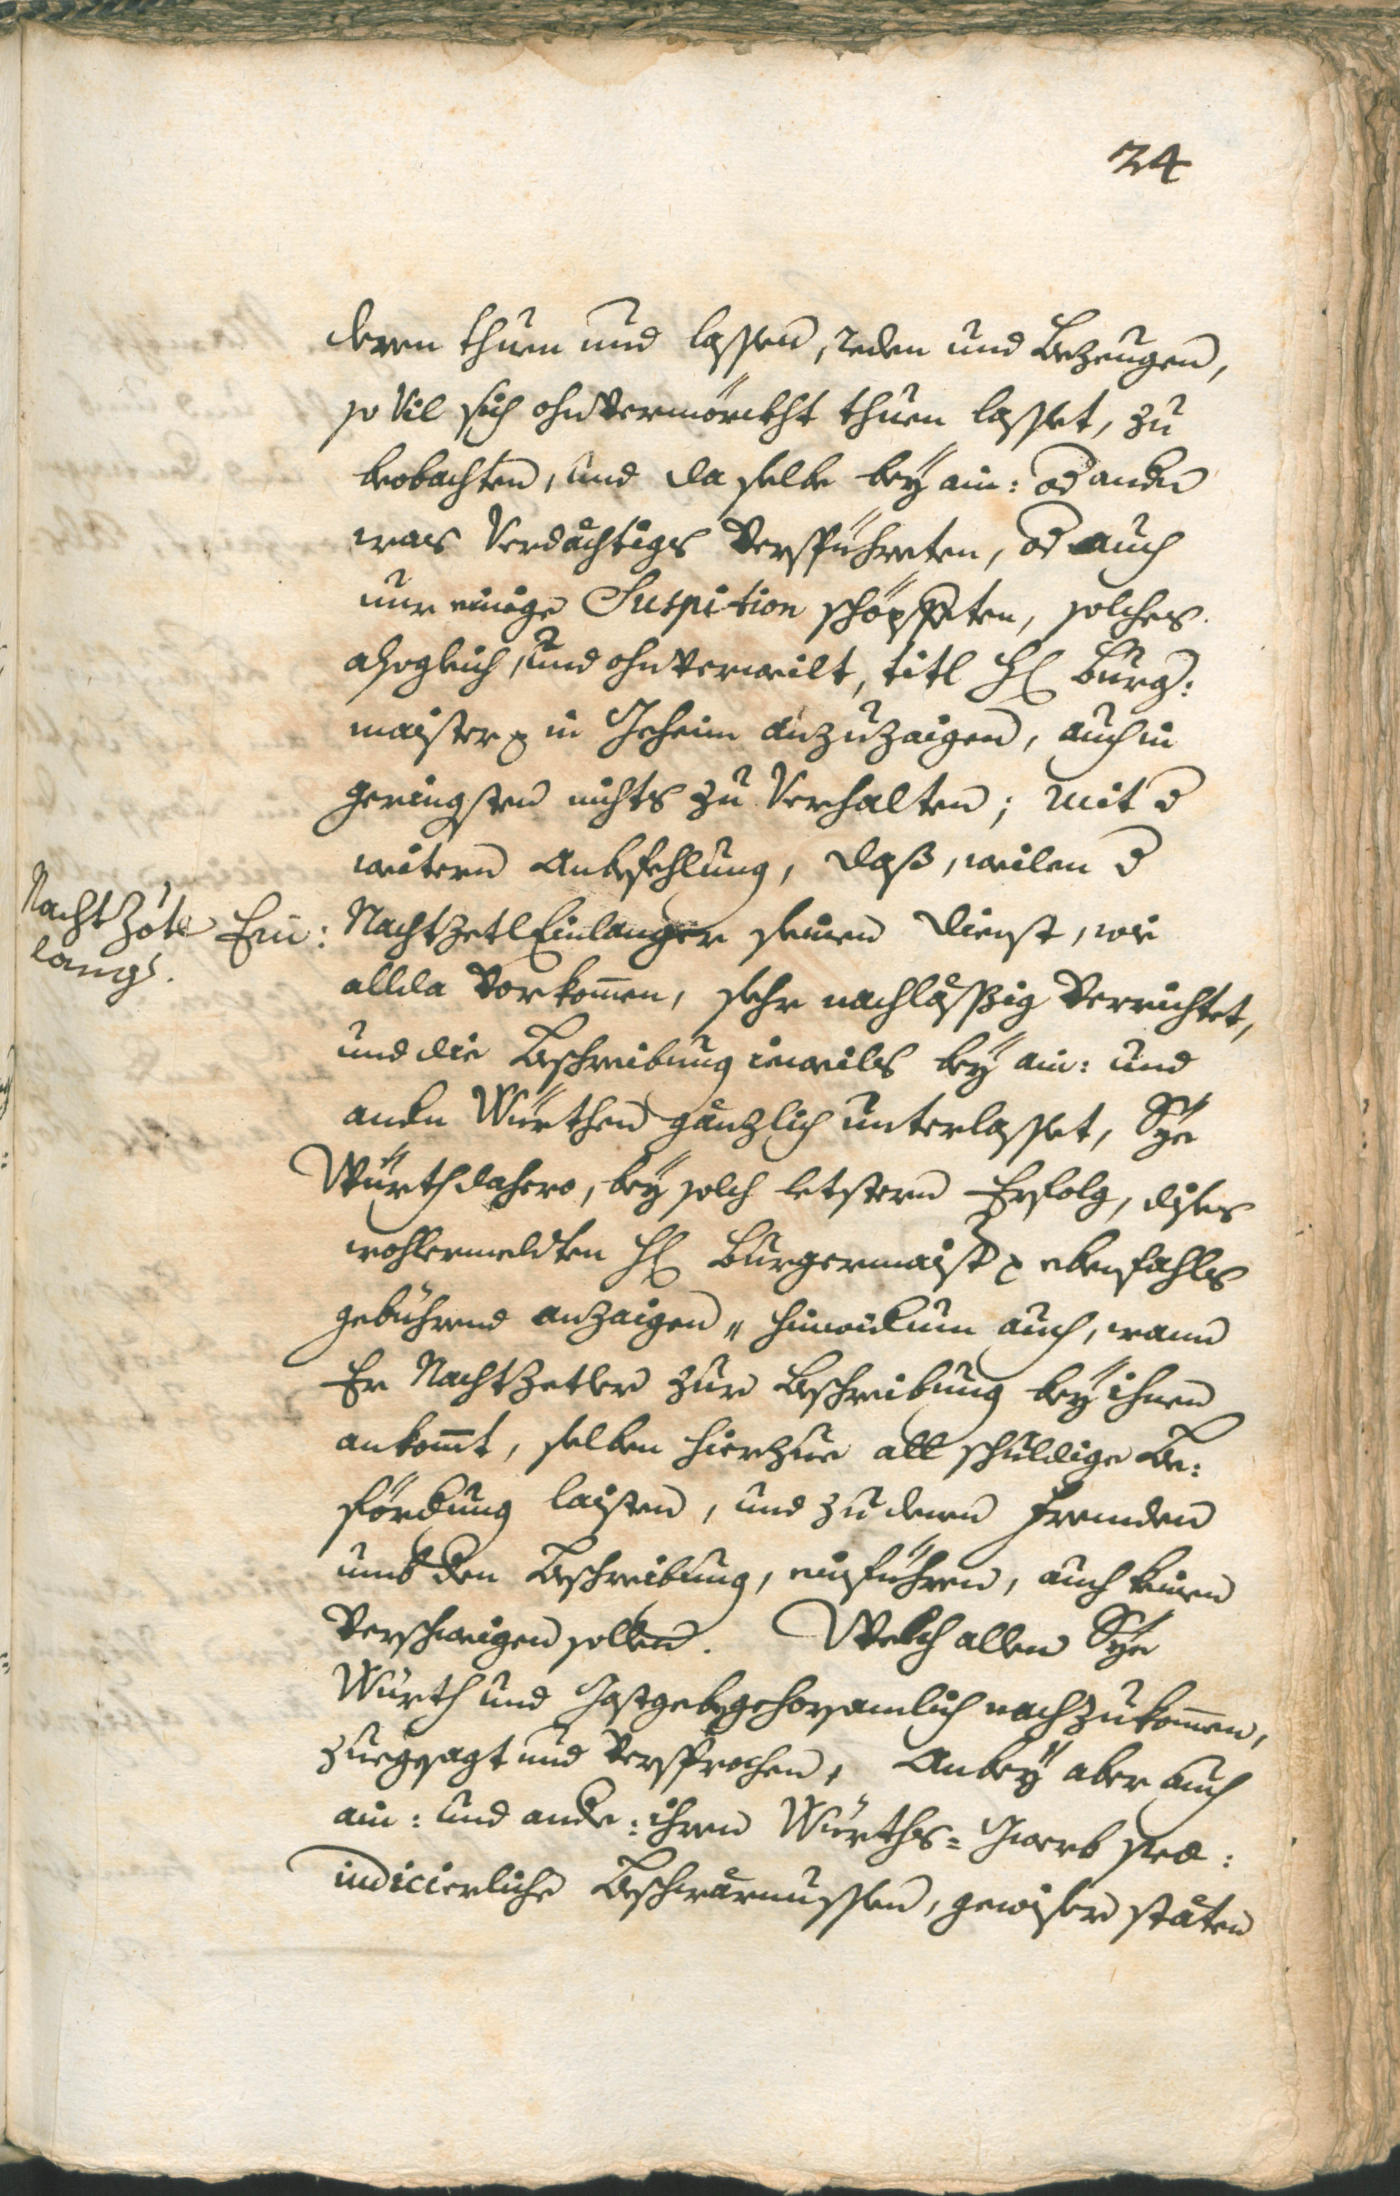 24
deren thuen und lassen, reden und bezeugen,
so vil sich ohnvermörckht thuen lasset, zu
beobachten, und da selbe beÿ ain: od andn
was Verdächtiges verspühreten, od auch
nur einige Suspition schöpfeten, solches
alsogleich, und ohnverweilt, titl H Burg:
maister in Geheim anzuzaigen, auch in
geringsten nichts zu Verhalten; mit d
weitern Anbefehlung, daß, weilen d
Nacht Zötl Ein:
langer.
NachtzetlEinlanger seinen dienst, wie
allda vorkom̄en, sehr nachlässig verrichtet,
und die Beschreibung ieweils beÿ ain: und
andn Würthen gänzlich unterlasset, Sÿe
Würth dahero, beÿ solch letstern Erfolg, dises
wohlermeldten H Burgermaistr ebenfahls
gebührend anzaigen, hinwidrum auch, wann
Er Nachtzetler zur Beschreibung beÿ ihnen
ankom̄t, selben hierzue all schuldige Be:
fördrung laisten, und zu denen Fremden
umb den Beschreibung, einführen, auch keinen
verschweigen sollen. Welch allen Sÿe
Würth und Gastgeb gehorsamlich nachzukom̄en,
zuegesagt und versprochen, Anbeÿ aber auch
ain: und andre: ihren Würths= Gwerb præ:
iudicierliche Beschwärnussen, gewiser stäten